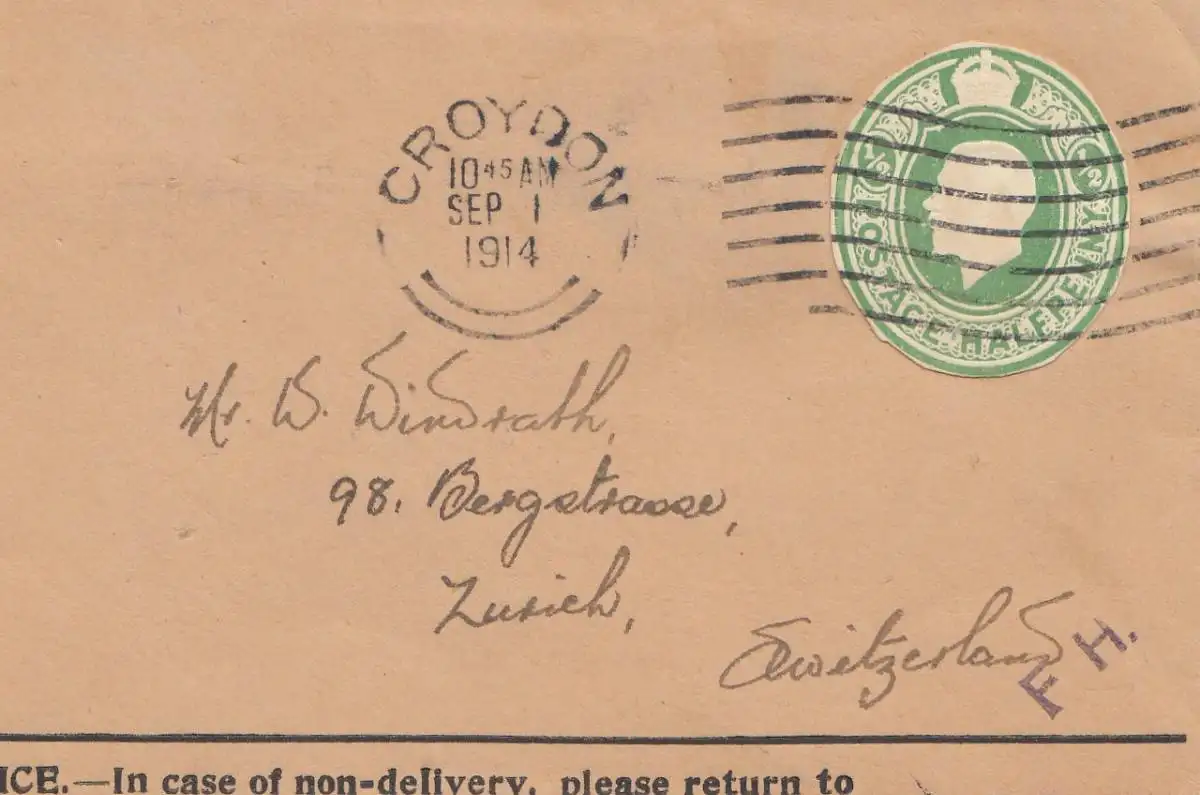 CROYDON
10 45 AM
SEP 1
1914
½ ½
POSTAGE HALFPENNY
Mr. W. Windrath,
98. Bergstrasse,
Zurich,
Switzerland
F. H.
ICE.—In case of non-delivery, please return to